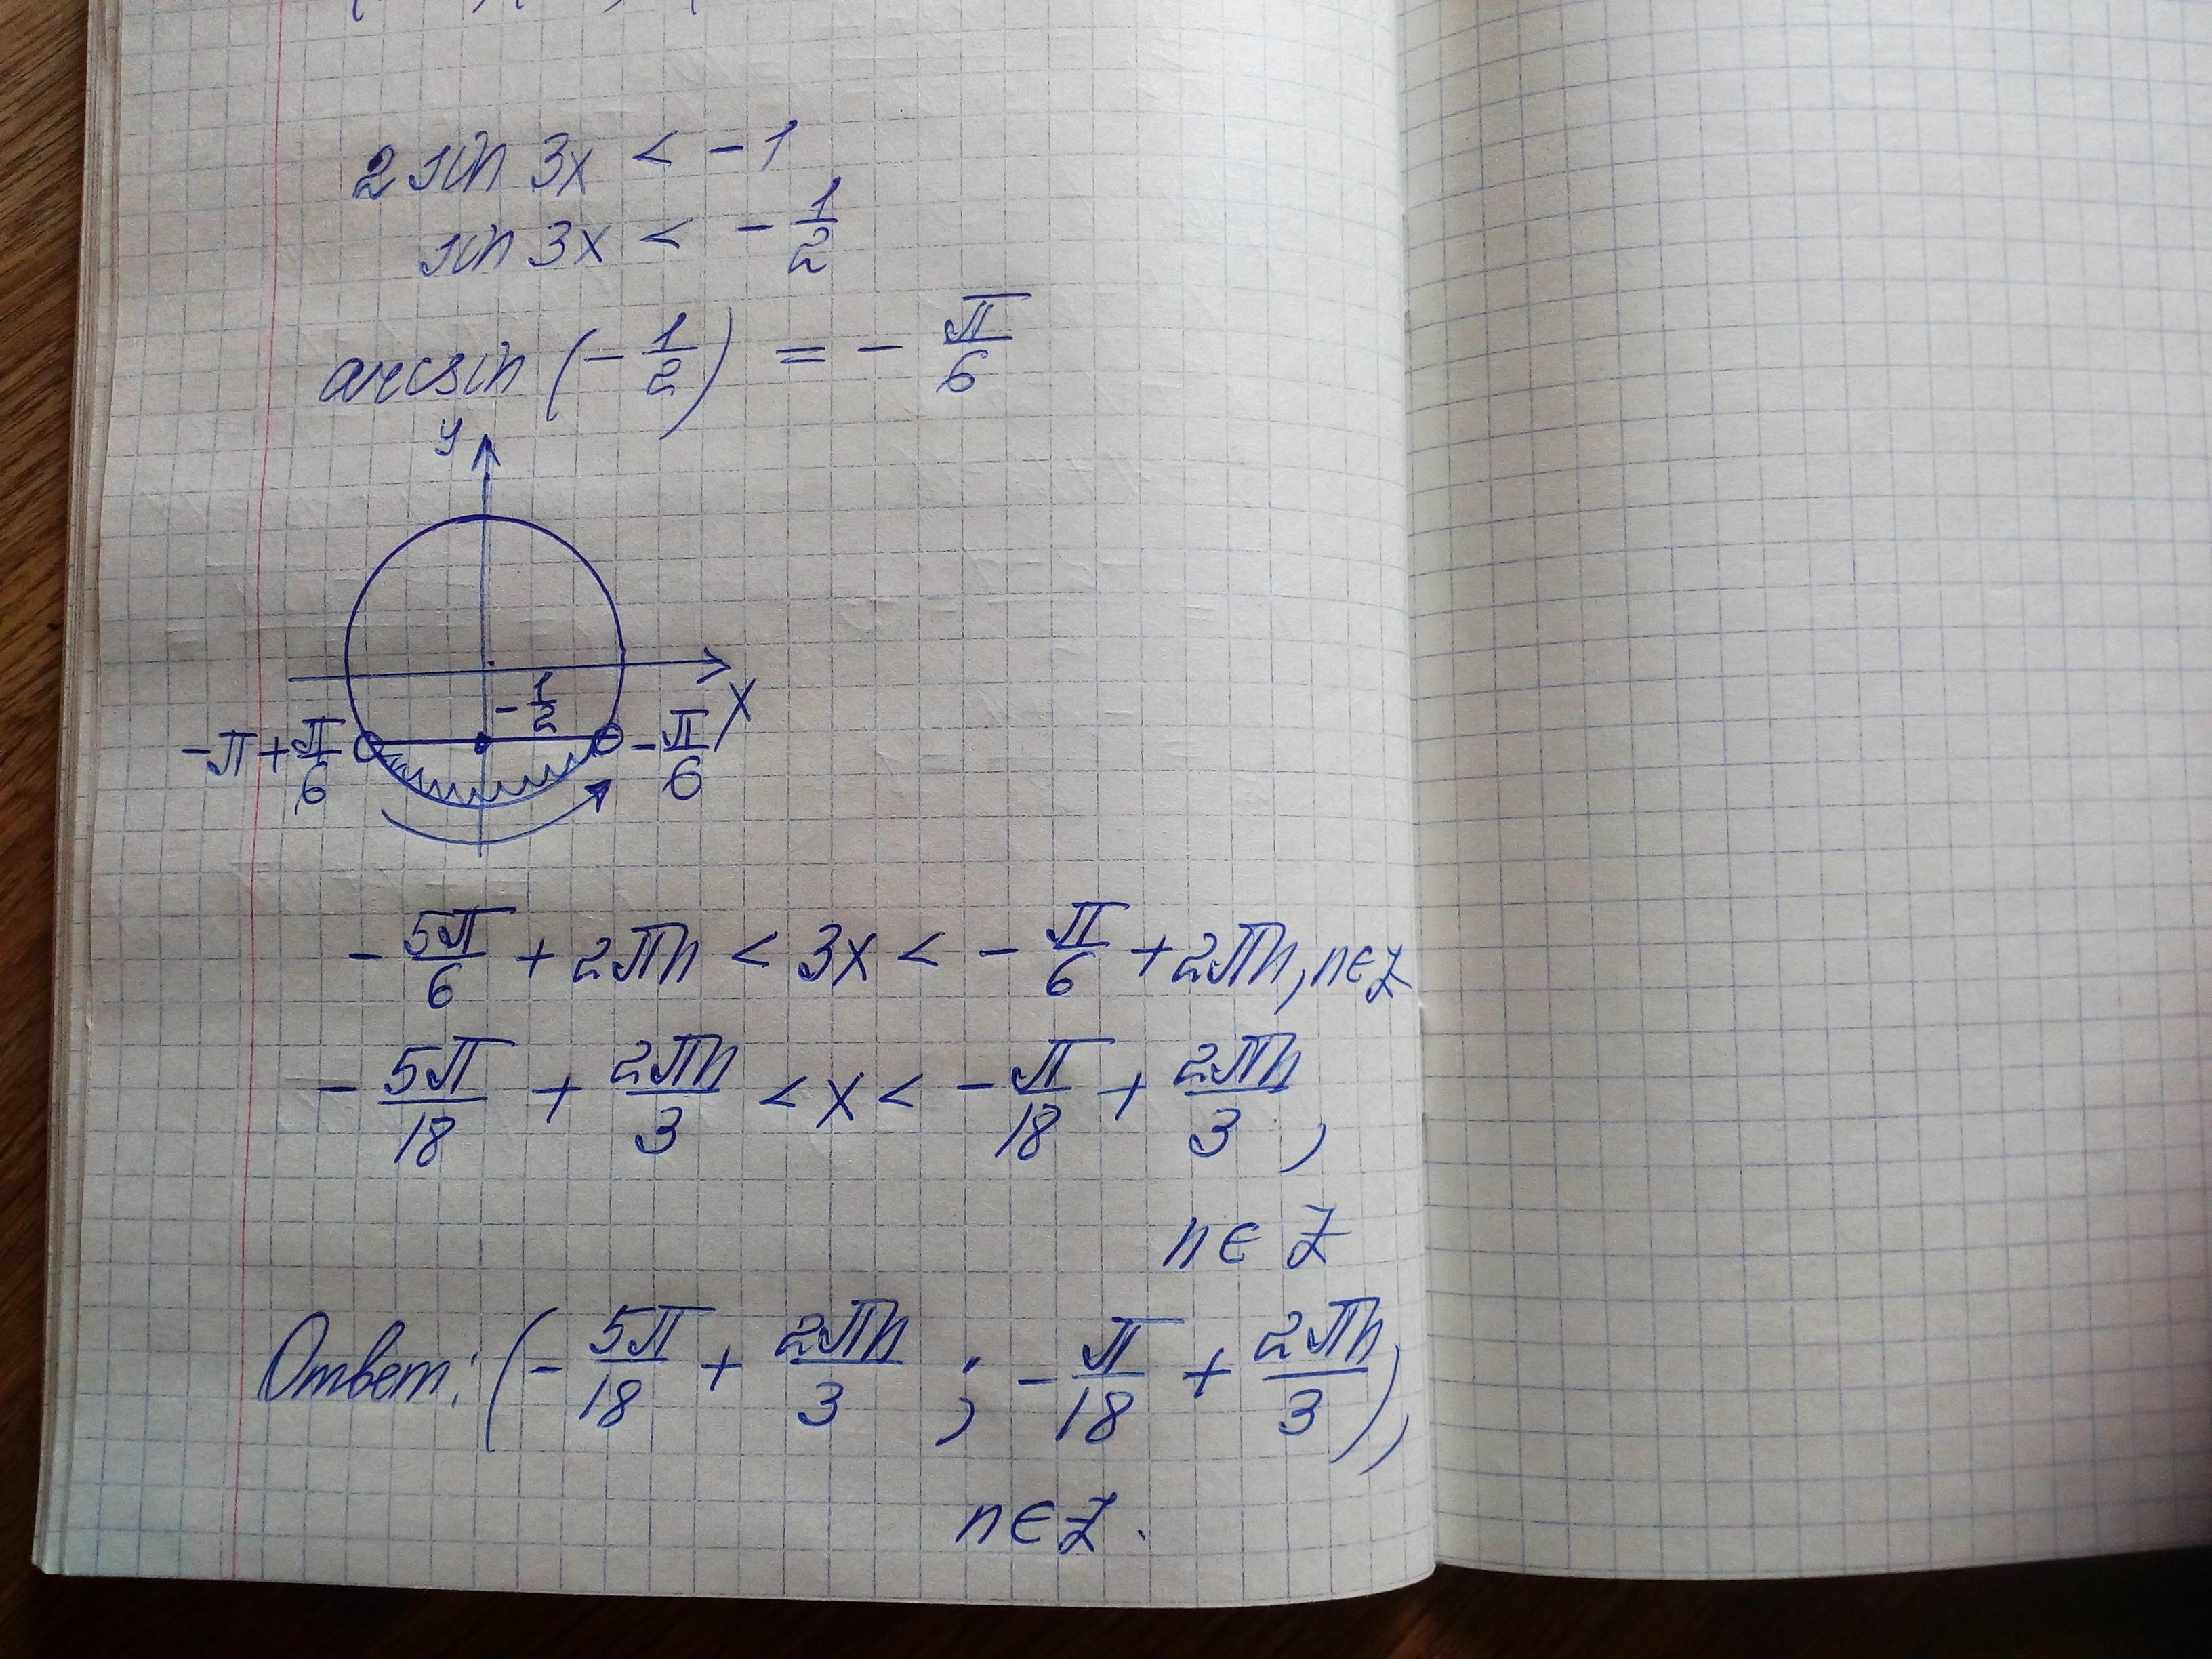 2 sin 3x < -1
sin 3x < - 1/2
arcsin (- 1/2) = - π/6
y
- 1/2
x
-π + π/6
- π/6
- 5π/6 + 2πn < 3x < - π/6 + 2πn, n∈Z
- 5π/18 + 2πn/3 < x < - π/18 + 2πn/3 ,
n ∈ Z
Ответ: (- 5π/18 + 2πn/3 ; - π/18 + 2πn/3),
n∈Z.